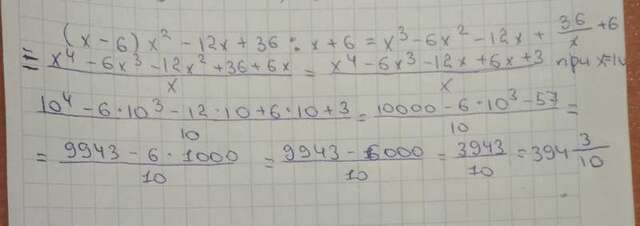 (x-6) x² - 12x + 36 : x + 6 = x³ - 6x² - 12x + 36/x + 6
= (x⁴ - 6x³ - 12x² + 36 + 6x)/x = (x⁴ - 6x³ - 12x + 6x + 3)/x при x=10
(10⁴ - 6·10³ - 12·10 + 6·10 + 3)/10 = (10000 - 6·10³ - 57)/10 =
= (9943 - 6·1000)/10 = (9943 - 6000)/10 = 3943/10 = 394 3/10